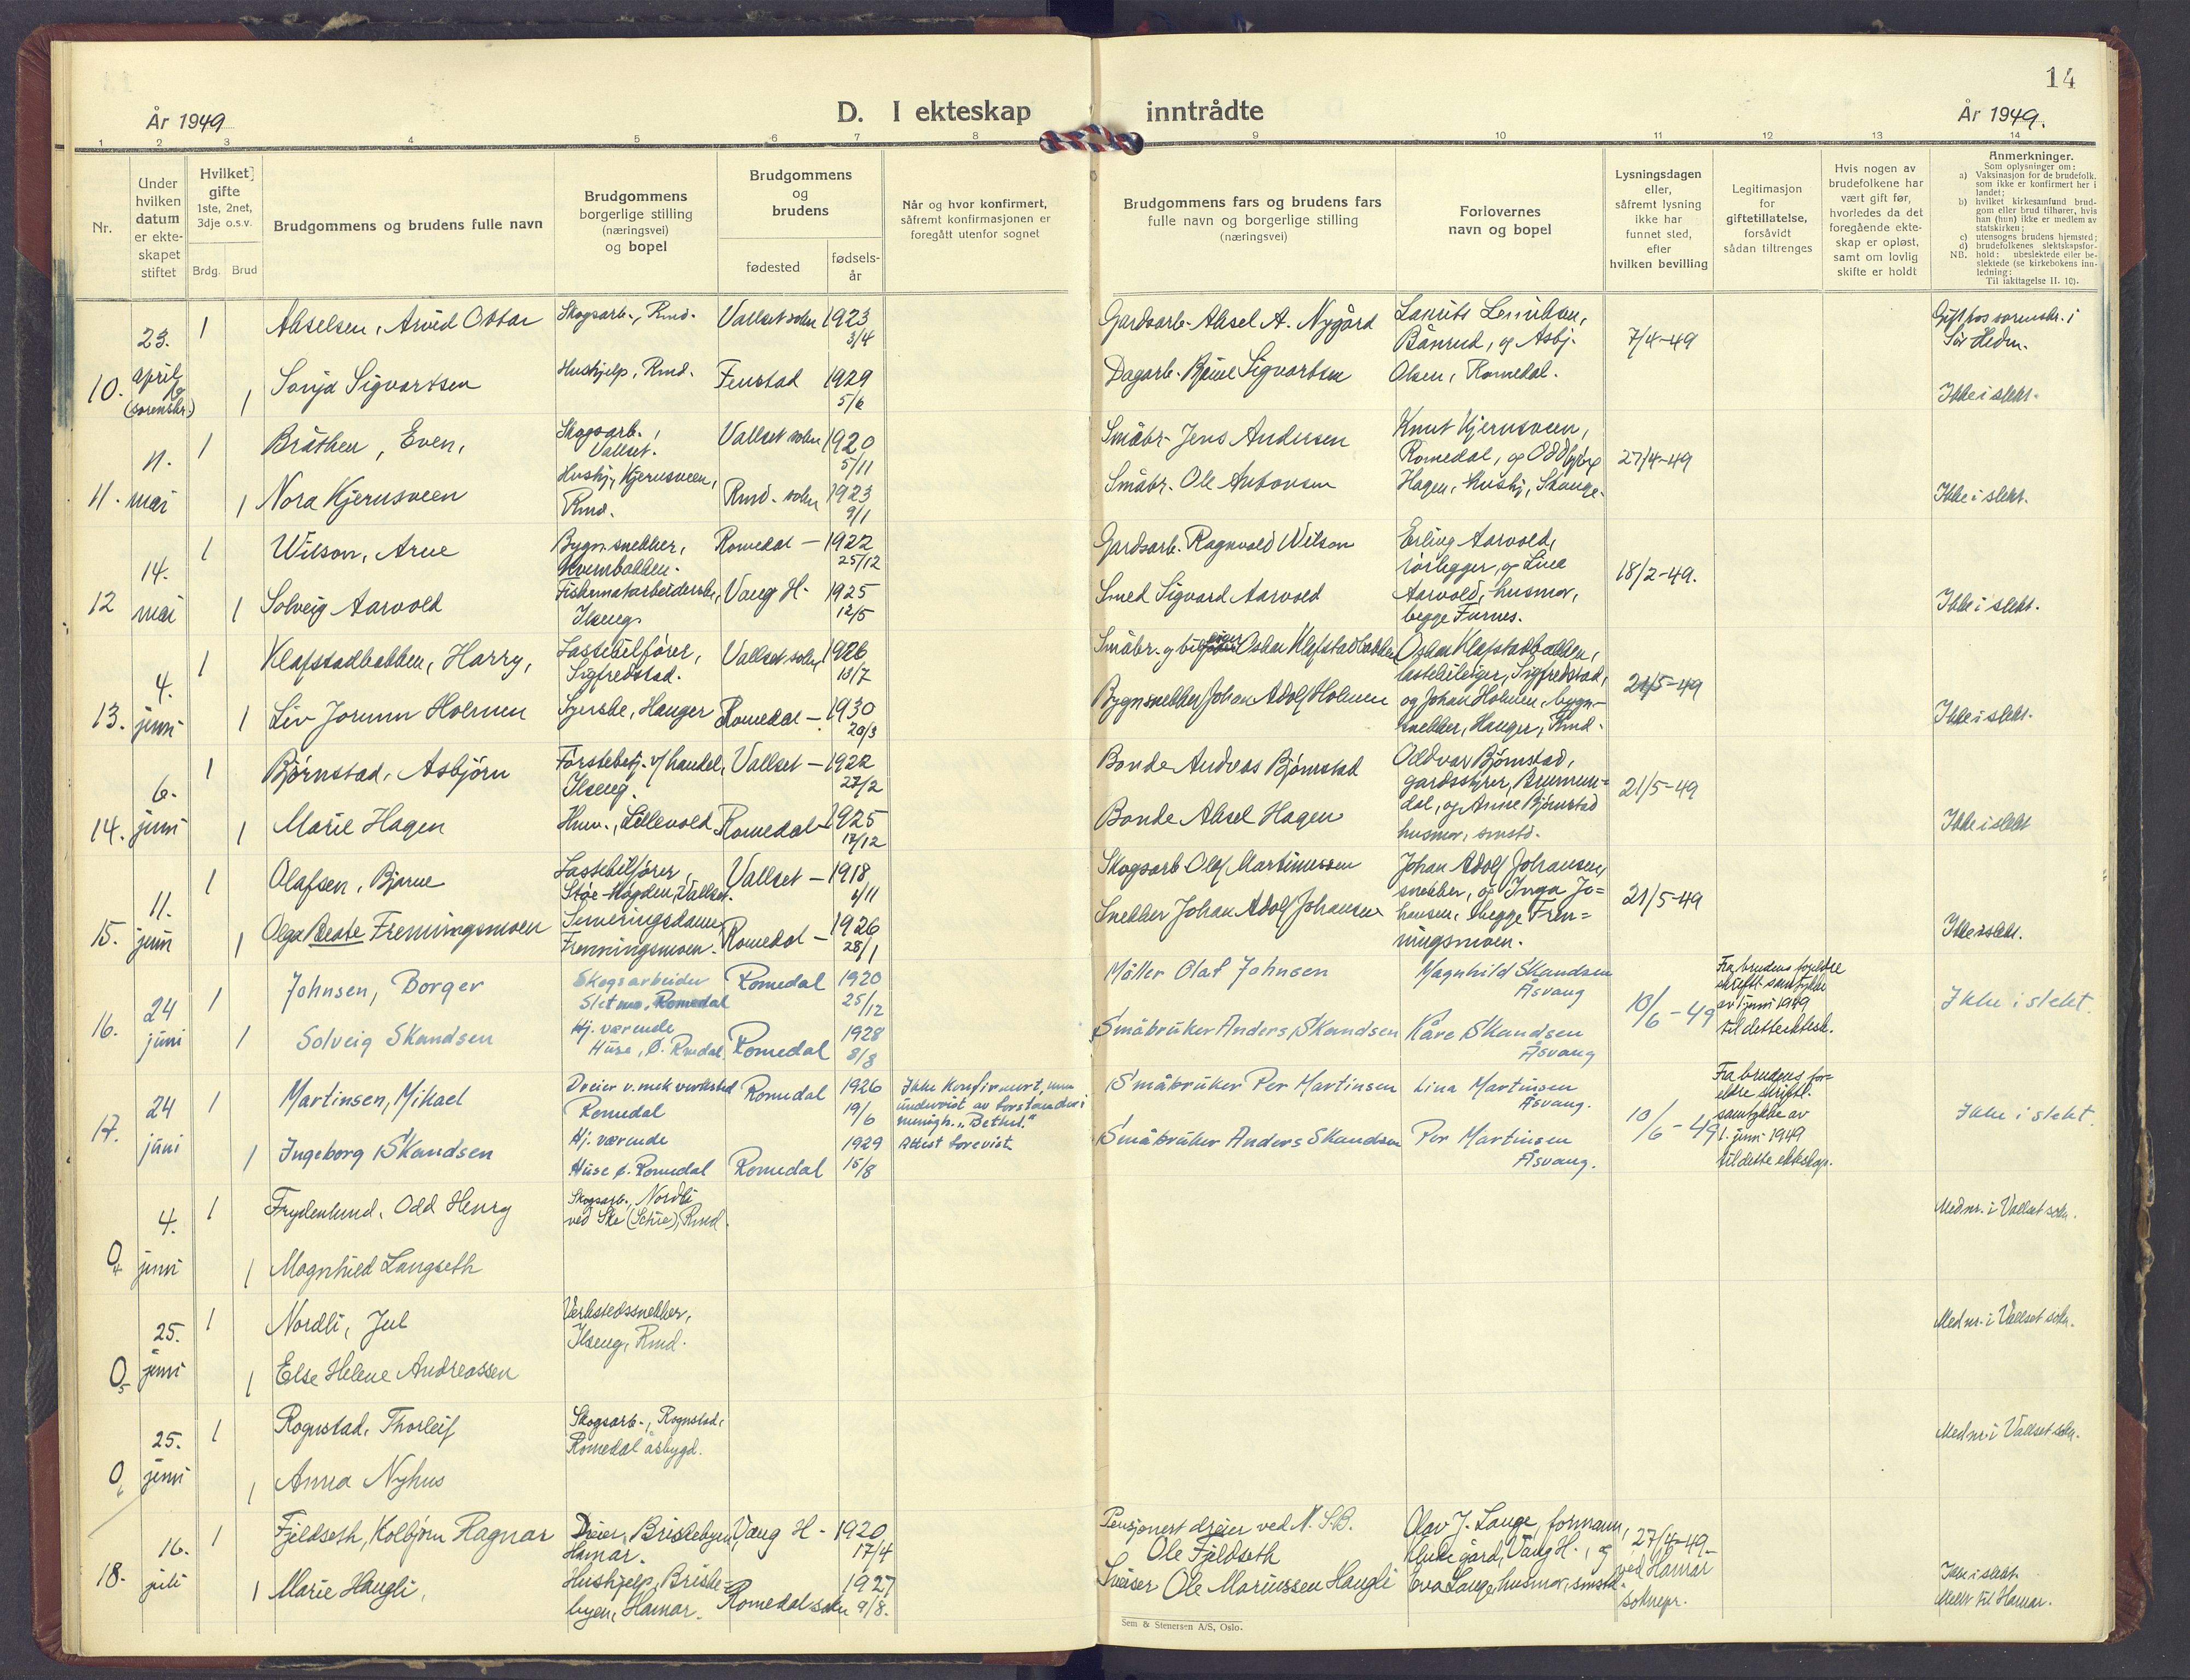 14
År 1949
D. I ekteskap inntrådte
År 1949.
1 2 3 4 5 6 7 8 9 10 11 12 13 14
Nr.
Under
hvilken
datum
er ekte-
skapet
stiftet
Hvilket
gifte
1ste, 2net,
3dje o.s.v.
Brdg. Brud
Brudgommens og brudens fulle navn
Brudgommens
borgerlige stilling
(næringsvei)
og bopel
Brudgommens
og
brudens
fødested
fødsels-
år
Når og hvor konfirmert,
såfremt konfirmasjonen er
foregått utenfor sognet
Brudgommens fars og brudens fars
fulle navn og borgerlige stilling
(næringsvei)
Forlovernes
navn og bopel
Lysningsdagen
eller,
såfremt lysning
ikke har
funnet sted,
efter
hvilken bevilling
Legitimasjon
for
giftetillatelse,
forsåvidt
sådan tiltrenges
Hvis nogen av
brudefolkene har
vært gift før,
hvorledes da det
foregående ekte-
skap er opløst,
samt om lovlig
skifte er holdt
Anmerkninger.
Som oplysninger om:
a) Vaksinasjon for de brudefolk.
som ikke er konfirmert her i
landet;
b) hvilket kirkesamfund brud-
gom eller brud tilhører, hvis
han (hun) ikke er medlem av
statskirken;
c) utensogns brudens hjemsted;
d) brudefolkenes slektskapsfor-
hold: ubeslektede eller be-
slektede (se kirkebokens inn-
ledning:
NB.
Til iakttagelse II. 10).
10.
23.
april
(sorenskr.)
1
Akselsen, Arvid Ottar
Skogsarb., Rmd.
Vallset sokn
1923
3/4
Gardsarb. Aksel A. Nygård
Laurits
Bånrud, og Asbj.
Olsen, Romedal.
7/4-49
Gift hos sorenskr. i
Sør Hedm.
1
Sonja Sigvartsen
Hushjelp, Rmd.
Fenstad
1929
5/6
Dagarb. Bjarne Sigvartsen
Ikke i slekt.
11.
11.
mai
1
Bråthen, Even,
Skogsarb.,
Vallset.
Vallset sokn
1920
5/11
Småbr. Jens Andersen
Knut Kjernsveen,
Romedal, og Oddbjørg
Hagen, hushj., Stange.
27/4-49
1
Nora Kjernsveen
Hushj., Kjernsveen,
Rmd.
Rmd. sokn
1923
9/1
Småbr. Ole Antonsen
Ikke i slekt.
12
14.
mai
1
Wilson, Arne
Bygn.snekker,
Kvernbakken.
Romedal
1922
25/12
Gardsarb. Ragnvald Wilson
Erling Aarvold,
rørlegger, og Line
Aarvold, husmor,
begge Furnes.
18/2-49.
1
Solveig Aarvold
Fiskematarbeiderske,
Ilseng.
Vang H.
1925
12/5
Smed Sigvard Aarvold
Ikke i slekt.
13.
4.
juni
1
Klafstadbakken, Harry,
Lastebilfører,
Sigfredstad.
Vallset sokn
1926
13/7
Småbr. og bileiger Oskar Klafstadbakken
Oskar Klafstadbakken,
lastebileier, Sigfredstad,
og Johan Holmen, bygn.-
snekker, Hanger, Rmd.
21/5-49
1
Liv Jorunn Holmen
Syerske, Hanger
Romedal
1930
20/3
Bygn.snekker Johan Adolf Holmen
Ikke i slekt.
14.
6.
juni
1
Bjørnstad, Asbjørn
Førstebetj. v/handel,
Ilseng.
Vallset
1922
27/2
Bonde Andreas Bjørnstad
Oddvar Bjørnstad,
gardsstyrer, Brumun=
dal, og Anne Bjørnstad
husmor, smstd.
21/5-49
1
Marie Hagen
Hmv., Lillevold
Romedal
1925
17/12
Bonde Aksel Hagen
Ikke i slekt
15.
11.
juni
1
Olafsen, Bjarne
Lastebilfører,
Støe-Høgden, Vallset.
Vallset
1918
6/11
Skogsarb Olaf Martinussen
Johan Adolf Johansen,
snekker, og Inga Jo=
hansen, begge Fren=
ningsmoen.
21/5-49
1
Olga Beate Frenningsmoen
Serveringsdame,
Frenningsmoen.
Romedal
1926
28/1
Snekker Johan Adolf Johansen
Ikke i slekt.
16.
24
juni
1
Johnsen, Borger
Skogsarbeider
Romedal
1920
25/12
Møller Olaf Johnsen
Magnhild Skandsen
Åsvang
10/6-49
Fra brudens foreldre
skriftl. samtykke
av 1 juni 1949
til dette ektesk.
Ikke i slekt.
1
Solveig Skandsen
Hj. værende
Huse, Ø. Rmedal
Romedal
1928
8/8
Småbruker Anders Skandsen
Kåre Skandsen
Åsvang
17.
24
juni
1
Martinsen, Mikael
Dreier v. mek verksted
Romedal
Romedal
1926
19/6
Ikke konfirmert, men
undervist av forstander i
menigh. "Bethel."
Attest forevist
Småbruker Per Martinsen
Lina Martinsen
Åsvang.
10/6-49
Fra brudens for=
eldre skriftl.
samtykke av
1. juni 1949
til dette ekteskap.
Ikke i slekt.
1
Ingeborg Skandsen
Hj. værende
Huse Ø. Romedal
Romedal
1929
15/8
Småbruker Anders Skandsen
Per Martinsen
Åsvang.
0
4
4.
juni
1
Frydenlund, Odd Henry
Skogsarb., Nordli
ved Ske (Schie), Rmd.
Med nr. i Vallset sokn.
1
Magnhild Langseth
0
5
25.
juni
1
Nordli, Jul
Verkstedssnekker,
Ilseng, Rmd.
Med nr. i Vallset sokn.
1
Else Helene Andreassen
0
6
25.
juni
1
Rognstad, Thorleif
Skogsarb., Rognstad,
Romedal åsbygd.
Med nr. i Vallset sokn.
1
Anna Nyhus
18.
16.
juli
1
Fjeldseth, Kolbjørn Ragnar
Dreier, Briskebyen,
Hamar.
Vang H.
1920
17/4
Pensjonert dreier ved N.S.B.
Ole Fjeldseth
Olav J. Lange, formann,
gård, Vang H., og
Eva Lange, husmor, smstd.
27/4-49
ved Hamar
soknepr.
1
Marie Haugli,
Hushjelp, Briske-
byen, Hamar.
Romedal sokn
1927
9/8.
Sveiser Ole Mariussen Haugli
Ikke i slekt.
Meldt til Hamar.
Sem & Stenersen A/S, Oslo.